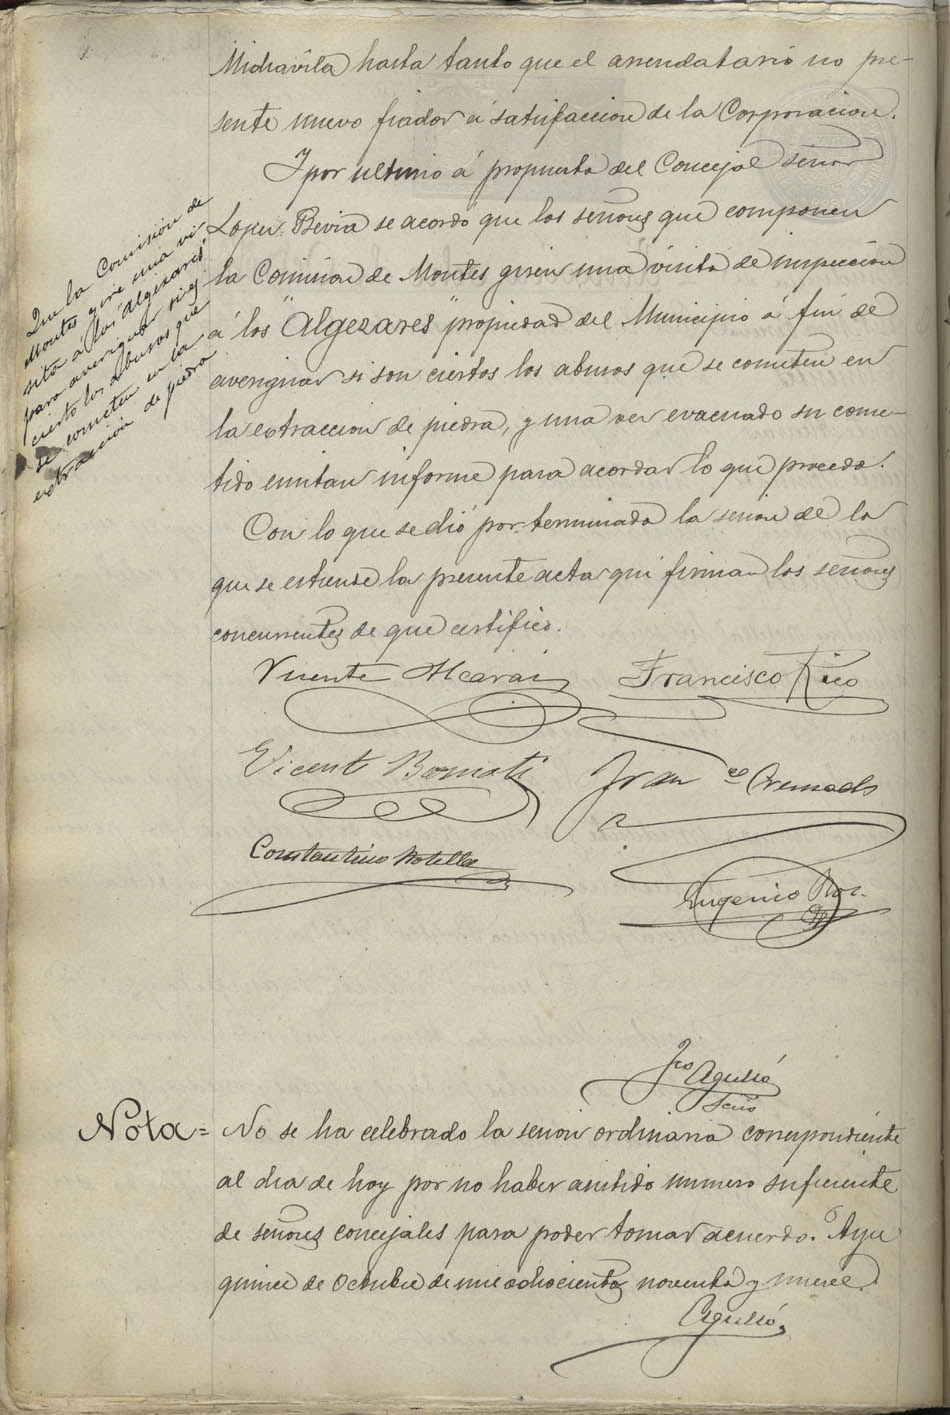 Michavila hasta tanto que el arrendatario no pre-
sente nuevo fiador á satisfaccion de la Corporacion.
Y por ultimo á propuesta del Concejal señor
Lopez Bevia se acordó que los señores que componen
la Comision de Montes giren una visita de inspeccion
á los "Algezares" propiedad del Municipio á fin de
averiguar si son ciertos los abusos que se cometen en
la extraccion de piedra, y una vez evacuado su come-
tido emitan informe para acordar lo que proceda.
Con lo que se dió por terminada la sesion de la
que se extiende la presente acta que firman los señores
concurrentes de que certifico.
Que la Comision de
Montes gire una vi
sita á los Algezares
para averiguar si es
cierto los abusos que
se cometen en la
extracción de piedra
Vicente Alcaraz
Francisco Rico
Vicente Bernati
Fran co Cremads
Constantino Botella
Eugenio
Fco Agulló
Scrio
Nota = No se ha celebrado la sesion ordinaria correspondiente
al dia de hoy por no haber asistido numero suficiente
de señores concejales para poder tomar acuerdo.
quince de Octubre de mil ochocientos noventa y nueve.
Agulló